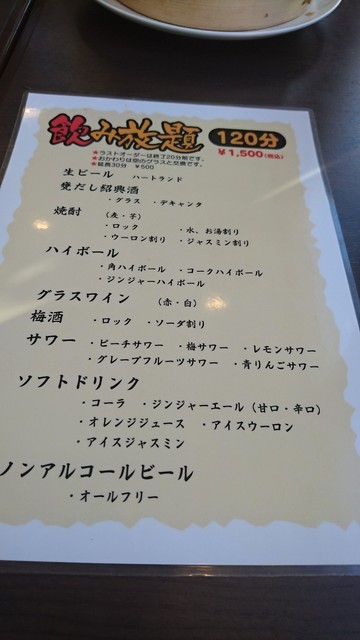 飲み放題 120分
★ラストオーダーは終了20分前です。 ¥1,500(税込)
★おかわりは空のグラスと交換です。
★延長30分 ¥500
生ビール ハートランド
甕だし紹興酒
・グラス ・デキャンタ
焼酎 (麦・芋)
・ロック ・水、お湯割り
・ウーロン割り ・ジャスミン割り
ハイボール
・角ハイボール ・コークハイボール
・ジンジャーハイボール
グラスワイン (赤・白)
梅酒 ・ロック ・ソーダ割り
サワー ・ピーチサワー ・梅サワー ・レモンサワー
・グレープフルーツサワー ・青りんごサワー
ソフトドリンク
・コーラ ・ジンジャーエール(甘口・辛口)
・オレンジジュース ・アイスウーロン
・アイスジャスミン
ノンアルコールビール
・オールフリー